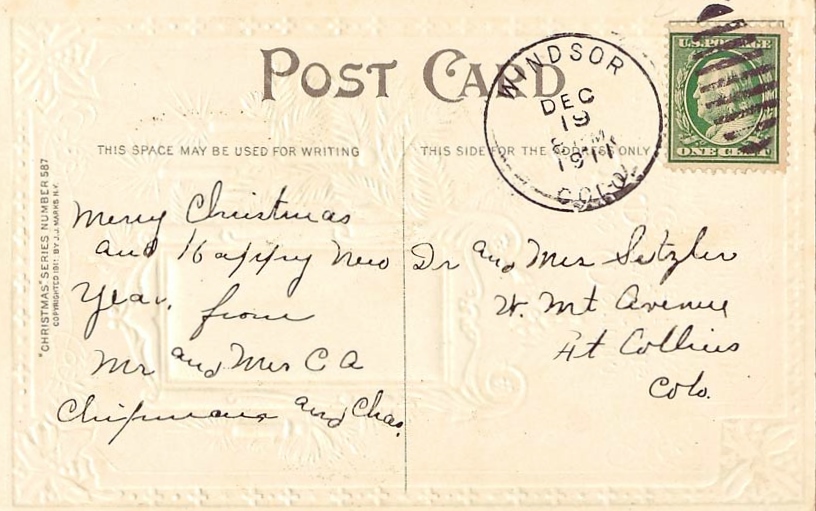 POST CARD
WINDSOR
DEC
19
1911
COLO.
U.S. POSTAGE
ONE CENT
THIS SPACE MAY BE USED FOR WRITING
THIS SIDE FOR THE ADDRESS ONLY
"CHRISTMAS" SERIES NUMBER 587
COPYRIGHTED 1911 BY J.J. MARKS N.Y.
Merry Christmas
and Happy New
Year. from
Mr and Mrs C A
Chipmans and Chas.
Dr and Mrs Setzler
W. Mt Avenue
Ft Collins
Colo.